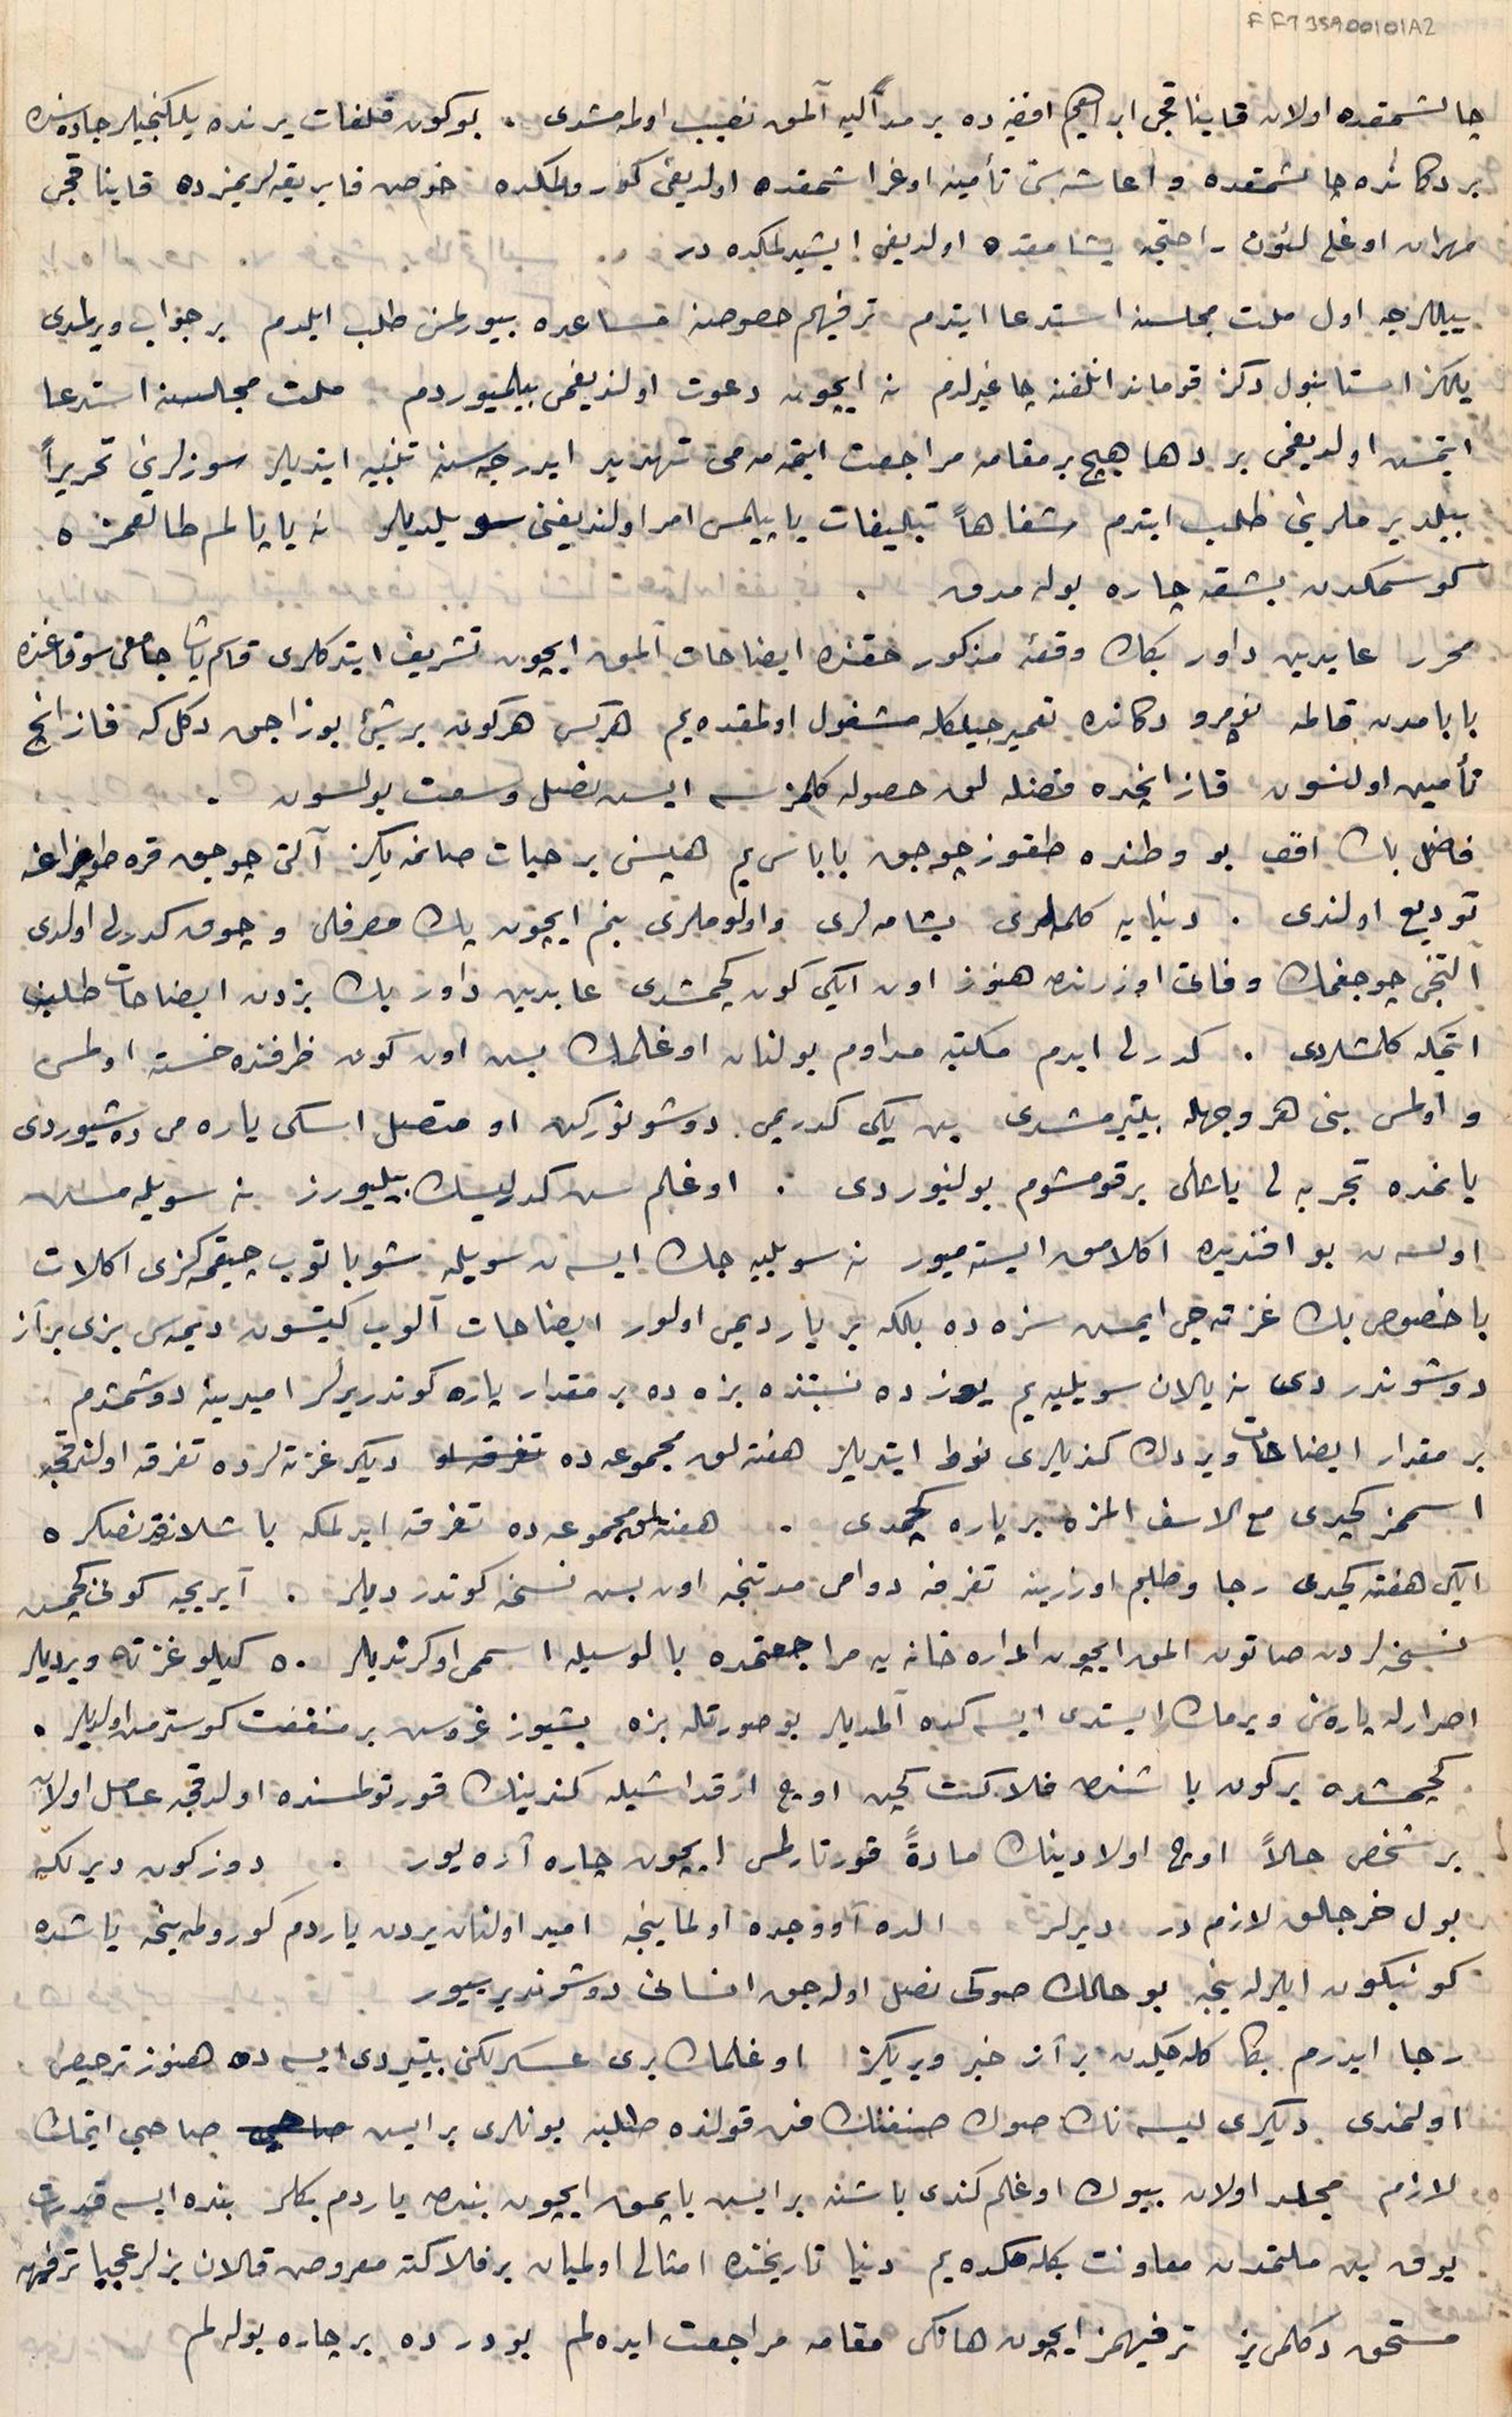 FFT35A00101A2
چالشمقده اولان قاینقجی ابراهیم افندی ده بر مدالیه آلمق نصیب اولمه مشدی . بوکون قلفات یرنده یلکنجیلر جاده سنده
بر دکانده چالشمقده و اعاشه سنی تأمینه اوغراشمقده اولدیغی کورولمکده خوصن فابریقه لریمزده قاینقجی
مهران اوغلی لئون راحتجه یشامقده اولدیغی ایشیدلمکده در
ییللرجه اول ملت مجلسنه استدعا ایتدم ترفیهم خصوصنه مساعده بیورلمسنی طلب ایلدم بر جواب ویرلمدی
یالکز استانبول دکز قوماندانلغنه چاغیرلدم نه ایچون دعوت اولندیغمی بیلمیوردم ملت مجلسنه استدعا
ایتمش اولدیغمی بر دها هیچ بر مقامه مراجعت ایتمه مه می تهدید ایدرجه سنه تنبیه ایتدیلر سوزلرینی تحریراً
بیلدیرملرینی طلب ایتدم شفاهاً تبلیغات یاپیلمسی امر اولندیغنی سویلدیلر نه یاپالم طالعمزه
کوسمکدن بشقه چاره بوله مدق .
محرر عابدین داور بکك وقعهٔ مذکور حقنده ایضاحات آلمق ایچون تشریف ایتدکلری قاسم پاشا جامعی سوقاغنده
بابامدن قالمه نومرو دکانده تعمیرجیلکله مشغول اولمقده یم هرکس هرکون بر شیئ بوزاجق دکل که قازانج
تأمین اولنسون قازانجده فضله لق حصوله کلمز سه ایش نصل وسعت بولسون .
فاضل باك افندی بو وطنده طقوز چوجق باباسی یم هپسنی بر حیات صانمه یکز آلتی چوجق قره طوپراغه
تودیع اولندی . دنیایه کلملری یشامه لری و اولوملری بنم ایچون پك مصرفلی و چوق کدرلی اولدی
آلتنجی چوجغمك وفاتی اوزرنده هنوز اون ایکی کون کچمشدی عابدین داور بك بزدن ایضاحات طلب
ایتمکه کلمشلردی . کدرلی ایدم مکتبه مداوم بولنان اوغلمك بش اون کون ظرفنده خسته اولمسی
و اولمسی بنی هر وجهله بیتیرمشدی بن یکی کدریمی دوشونورکن او متصل اسکی یاره می ده شیوردی
یانمده تجربه لی یاشلی بر قومشوم بولنیوردی . اوغلم سن کدرلیسك بیلیورز نه سویله مسن
اولسه ن بو افندیده اکلامق ایسته میور نه سویلیه جك ایسه ن سویله شو باتوب چیقمه کزی اکلات
باخصوص بك غزته جی ایمش سزه ده بلکه بر یاردیمی اولور ایضاحات آلوب کیتسون دیمه سی بزی بر آز
دوشوندردی نه یالان سویلیه یم یوزده نسبتنده بزه ده بر مقدار پاره کوندریرلر امیدینه دوشمشدم
بر مقدار ایضاحات ویردك کندیلری نوط ایتدیلر هفته لق مجموعه ده دیکر غزته لرده تفرقه اولندقجه
اسممز کچدی مع الاسف المزه بر پاره کچمدی . هفته لق مجموعه ده تفرقه ایدلمکه باشلاندقدنصکره
ایکی هفته کچدی رجا و طلبم اوزرینه تفرقه دوامی مدتنجه اون بش نسخه کوندردیلر . آیریجه کونی کچمش
نسخه لردن صاتون المق ایچون اداره خانه یه مراجعتمده بالوسیله اسممی اوکرندیلر ٥٠ کیلو غزته ویردیلر
اصرارله پاره سنی ویرمك ایستدی ایسه کده آلمدیلر بو صورتله بزه بشیوز غروش بر منفعت کوسترمش اولدیلر .
کچمشده بر کون باشنده فلاکت کچن اوچ ارقداشیله کندینك قورتولمسنده اولدقجه عامل اولان
بر شخص حالاً اوچ اولادینك مادةً قورتارلمسی ایچون چاره آره یور . دوز کون دیرلکه
بول خرجلق لازم در دیرلر الده آووجده اولماینجه امید اولنان یردن یاردم کورولمه ینجه یاشده
کونبکون ایلرله ینجه بو حالك صوکی نصل اوله جق انسانی دوشوندیریور
رجا ایدرم بکا کله جکدن بر آز خبر ویریکز اوغلمك بری عسکرلکنی بیتیردی ایسه ده هنوز ترخیص
اولمدی دیکری لیسه نك صوك صنفنك فن قولنده طلبه بونلری بر ایش صاحبی ایتمك
لازم مجلد اولان بیوك اوغلم کندی باشنه بر ایش یاپمق ایچون بندن یاردم بکلر بنده ایسه قدرت
یوق بن ملتمدن معاونت بکله مکده یم دنیا تاریخنده امثالی اولمیان بر فلاکته معروض قالان بزلر عجبا ترفیهه
مستحق دکلمی یز ترفیهمز ایچون هانکی مقامه مراجعت ایده لم بو درده بر چاره بوله لم